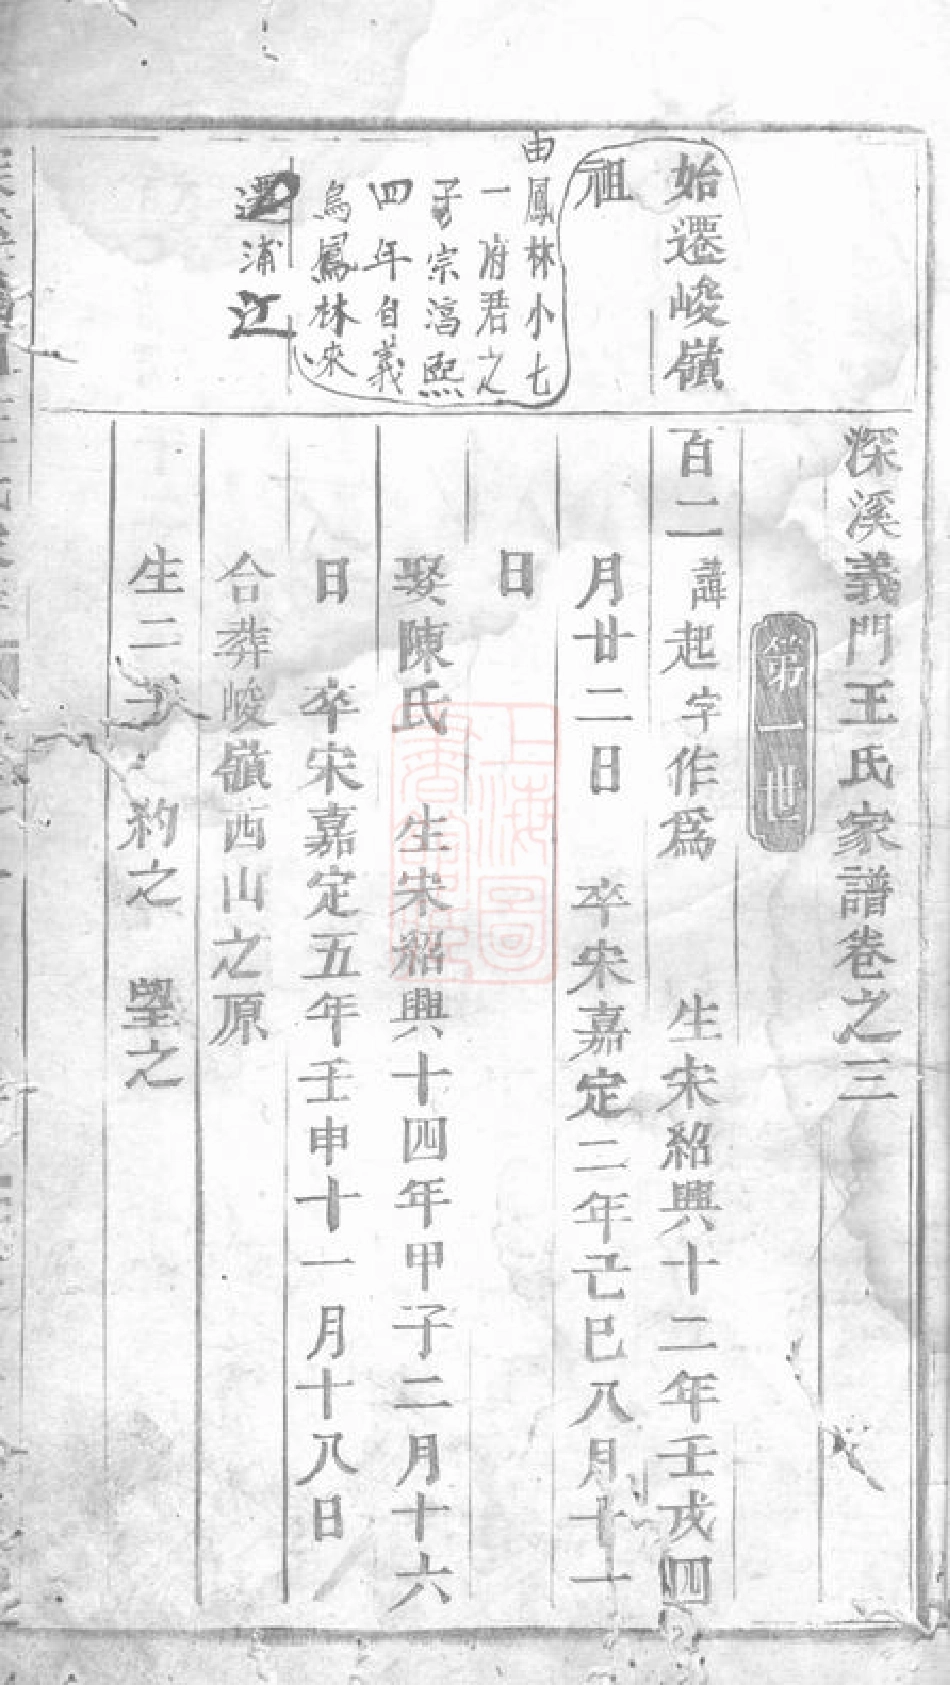 深溪義門王氏家譜卷之三
第一世
始遷峻嶺
祖
由鳳林小七
一府君之
子宗滔熙
四年自義
烏鳳林來
遷浦江
百二 諱起字作為 生宋紹興十二年壬戌四
月廿二日 卒宋嘉定二年己巳八月十一
日
娶陳氏 生宋紹興十四年甲子二月十六
日 卒宋嘉定五年壬申十一月十八日
合葬峻嶺西山之原
生二子 約之 望之
上海圖
書館藏